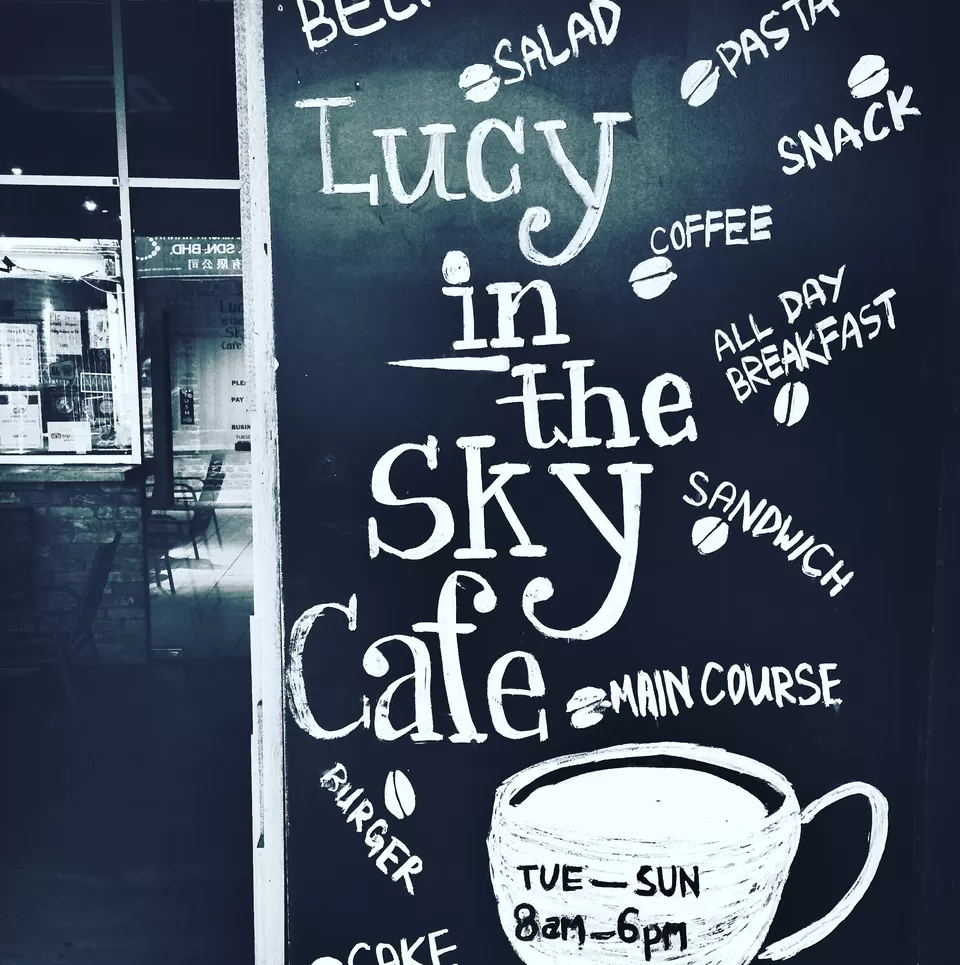 SALAD
PASTA
SNACK
Lucy
COFFEE
in
ALL DAY
BREAKFAST
the
Sky
SANDWICH
Cafe
MAIN COURSE
BURGER
TUE — SUN
8am - 6pm
CAKE
SDN. BHD.
有限公司
Lucy
in the
Sky
Cafe
PLEA
PAY
BUSIN